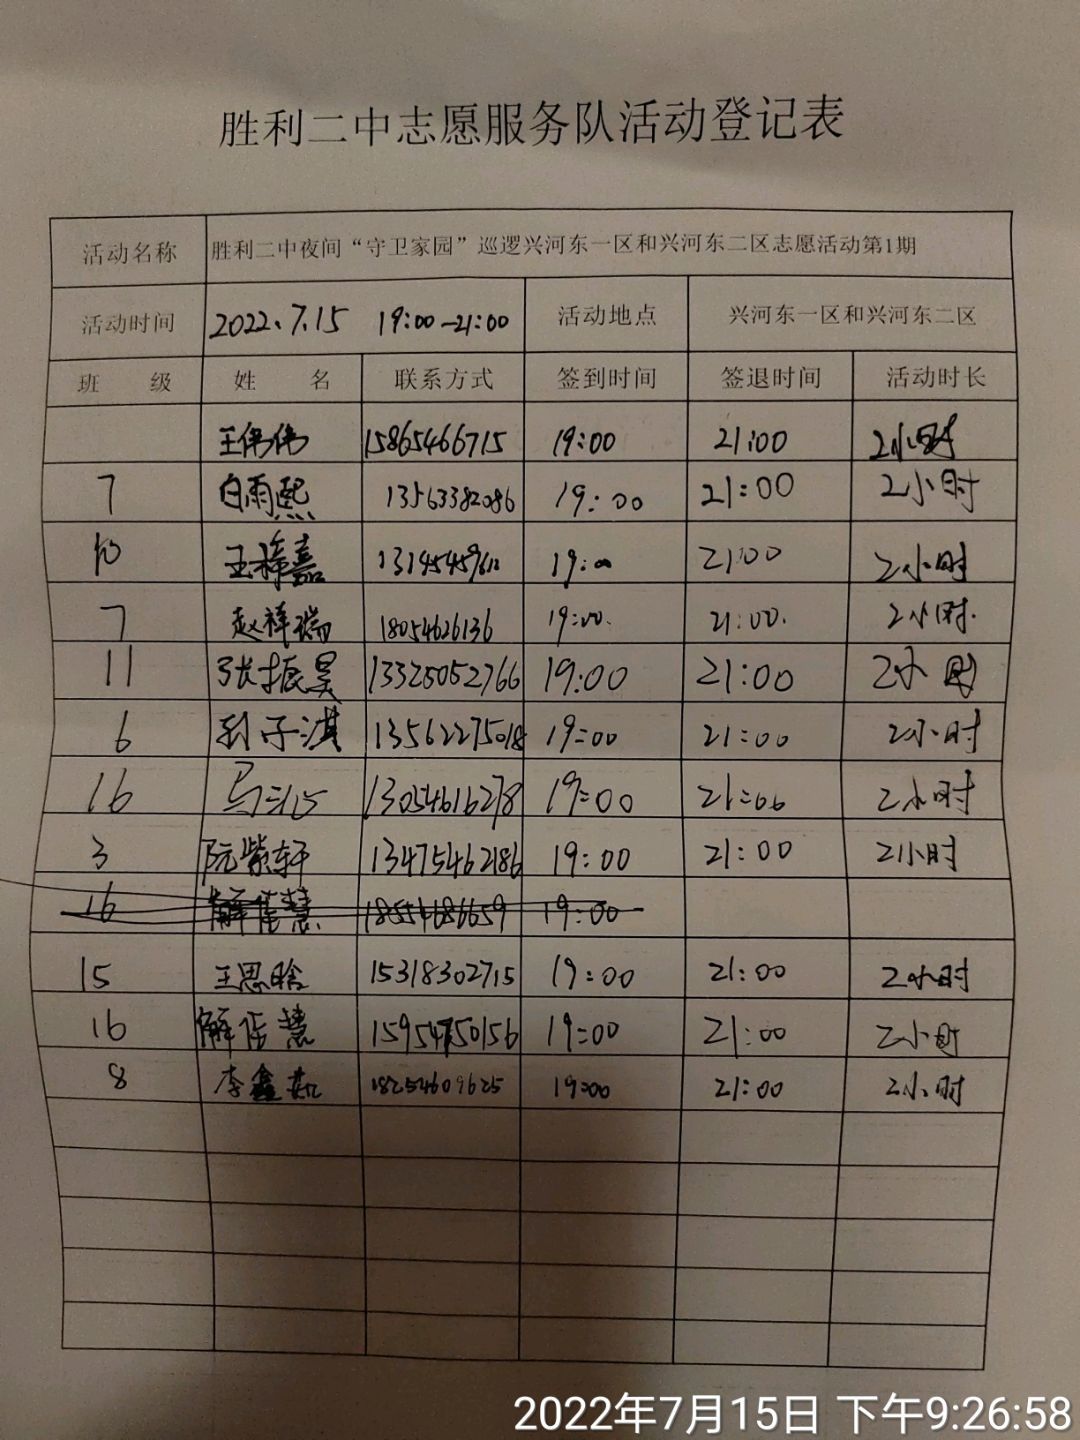 胜利二中志愿服务队活动登记表
活动名称 胜利二中夜间“守卫家园”巡逻兴河东一区和兴河东二区志愿活动第1期
活动时间 2022.7.15 19:00-21:00 活动地点 兴河东一区和兴河东二区
班 级 姓 名 联系方式 签到时间 签退时间 活动时长
王伟伟 15865466715 19:00 21:00 2小时
7 白雨熙 13563382086 19:00 21:00 2小时
10 王梓嘉 19:00 21:00 2小时
7 赵祥瑞 18054626136 19:00. 21:00. 2小时.
11 张振昊 13325052766 19:00 21:00 2小时
6 孙子淇 13562275018 19:00 21:00 2小时
16 马 13054616278 19:00 21:00 2小时
3 阮紫轩 13475462186 19:00 21:00 2小时
16 解佳慧 18554686659 19:00
15 王思晗 15318302715 19:00 21:00 2小时
16 解佳慧 15954750156 19:00 21:00 2小时
8 李鑫茹 18254609625 19:00 21:00 2小时
2022年7月15日 下午9:26:58